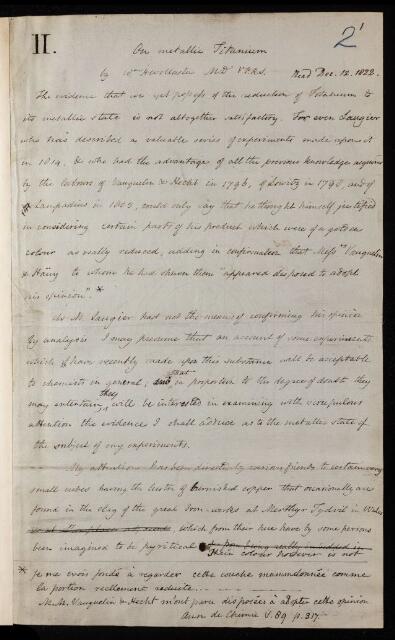 II.
2 1
On metallic Titanium
by Wm H. Wollaston M.D. V.P.R.S. Read Dec. 12. 1822.
The evidence that we yet possess of the reduction of Titanium to
its metallic state is not altogether satisfactory. For even Laugier
who has described a valuable series of experiments made upon it
in 1814, & who had the advantage of all the previous knowledge acquired
by the labours of Vauquelin & Hecht in 1796, of Lowitz in 1798, and of
Lampadius in 1803, could only say that he thought himself justified
in considering certain parts of his product which were of a golden
colour as really reduced, adding in confirmation that Messrs Vauquelin
& Haüy to whom he had shewn them "appeared disposed to adopt
his opinion". *
As M. Laugier had not the means of confirming his opinion
by analysis I may presume that an account of some experiments
which I have recently made upon this substance will be acceptable
to chemists in general; and that in proportion to the degree of doubt they
may entertain, they will be interested in examining with scrupulous
attention the evidence I shall adduce as to the metallic state of
the subject of my experiments.
My attention has been directed by various friends to certain very
small cubes having the lustre of burnished copper that occasionally are
found in the slag of the great Iron-works at Merthyr Tydvil in Wales
which from their hue have by some persons
been imagined to be pyritical
Their colour however is not
* je me crois fondé à regarder cette couche mamelonnée comme
la portion reellement reduite...
M.M. Vauquelin & Hecht m'ont paru disposés à adopter cette opinion
Ann. de Chimie V. 89 p. 317.